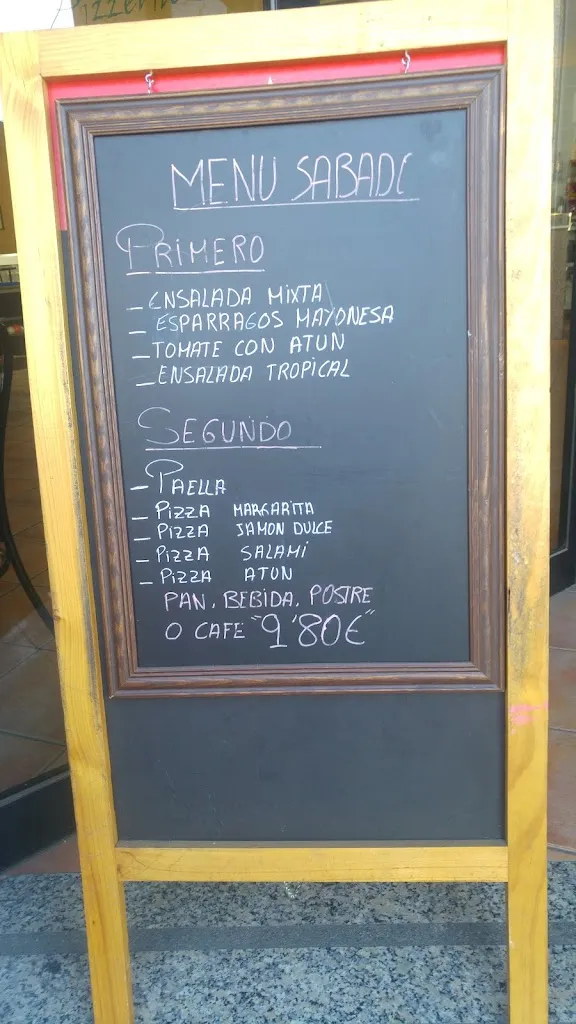 MENU SABADO
PRIMERO
- ENSALADA MIXTA
- ESPARRAGOS MAYONESA
- TOMATE CON ATUN
- ENSALADA TROPICAL
SEGUNDO
- PAELLA
- PIZZA MARGARITA
- PIZZA JAMON DULCE
- PIZZA SALAMI
- PIZZA ATUN
PAN, BEBIDA, POSTRE
O CAFE "9'80€"